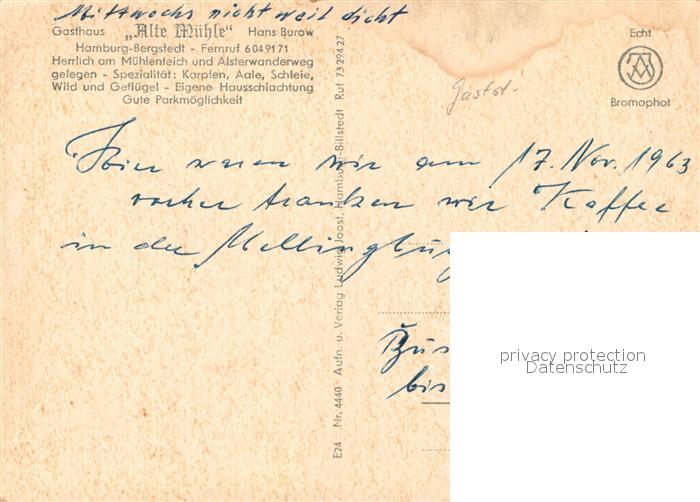 Mittwochs nicht weil dicht
Gasthaus „Alte Mühle“ Hans Burow
Hamburg-Bergstedt - Fernruf 6049171
Herrlich am Mühlenteich und Alsterwanderweg
gelegen - Spezialität: Karpfen, Aale, Schleie,
Wild und Geflügel - Eigene Hausschlachtung
Gute Parkmöglichkeit
Echt
Bromophot
Hier waren wir am 17. Nov. 1963
vorher tranken wir Kaffee
in der Mellingbu
bis
E24 Nr. 4440 Aufn. u. Verlag Ludwig Joost, Hamburg-Billstedt Ruf 7329427
privacy protection
Datenschutz